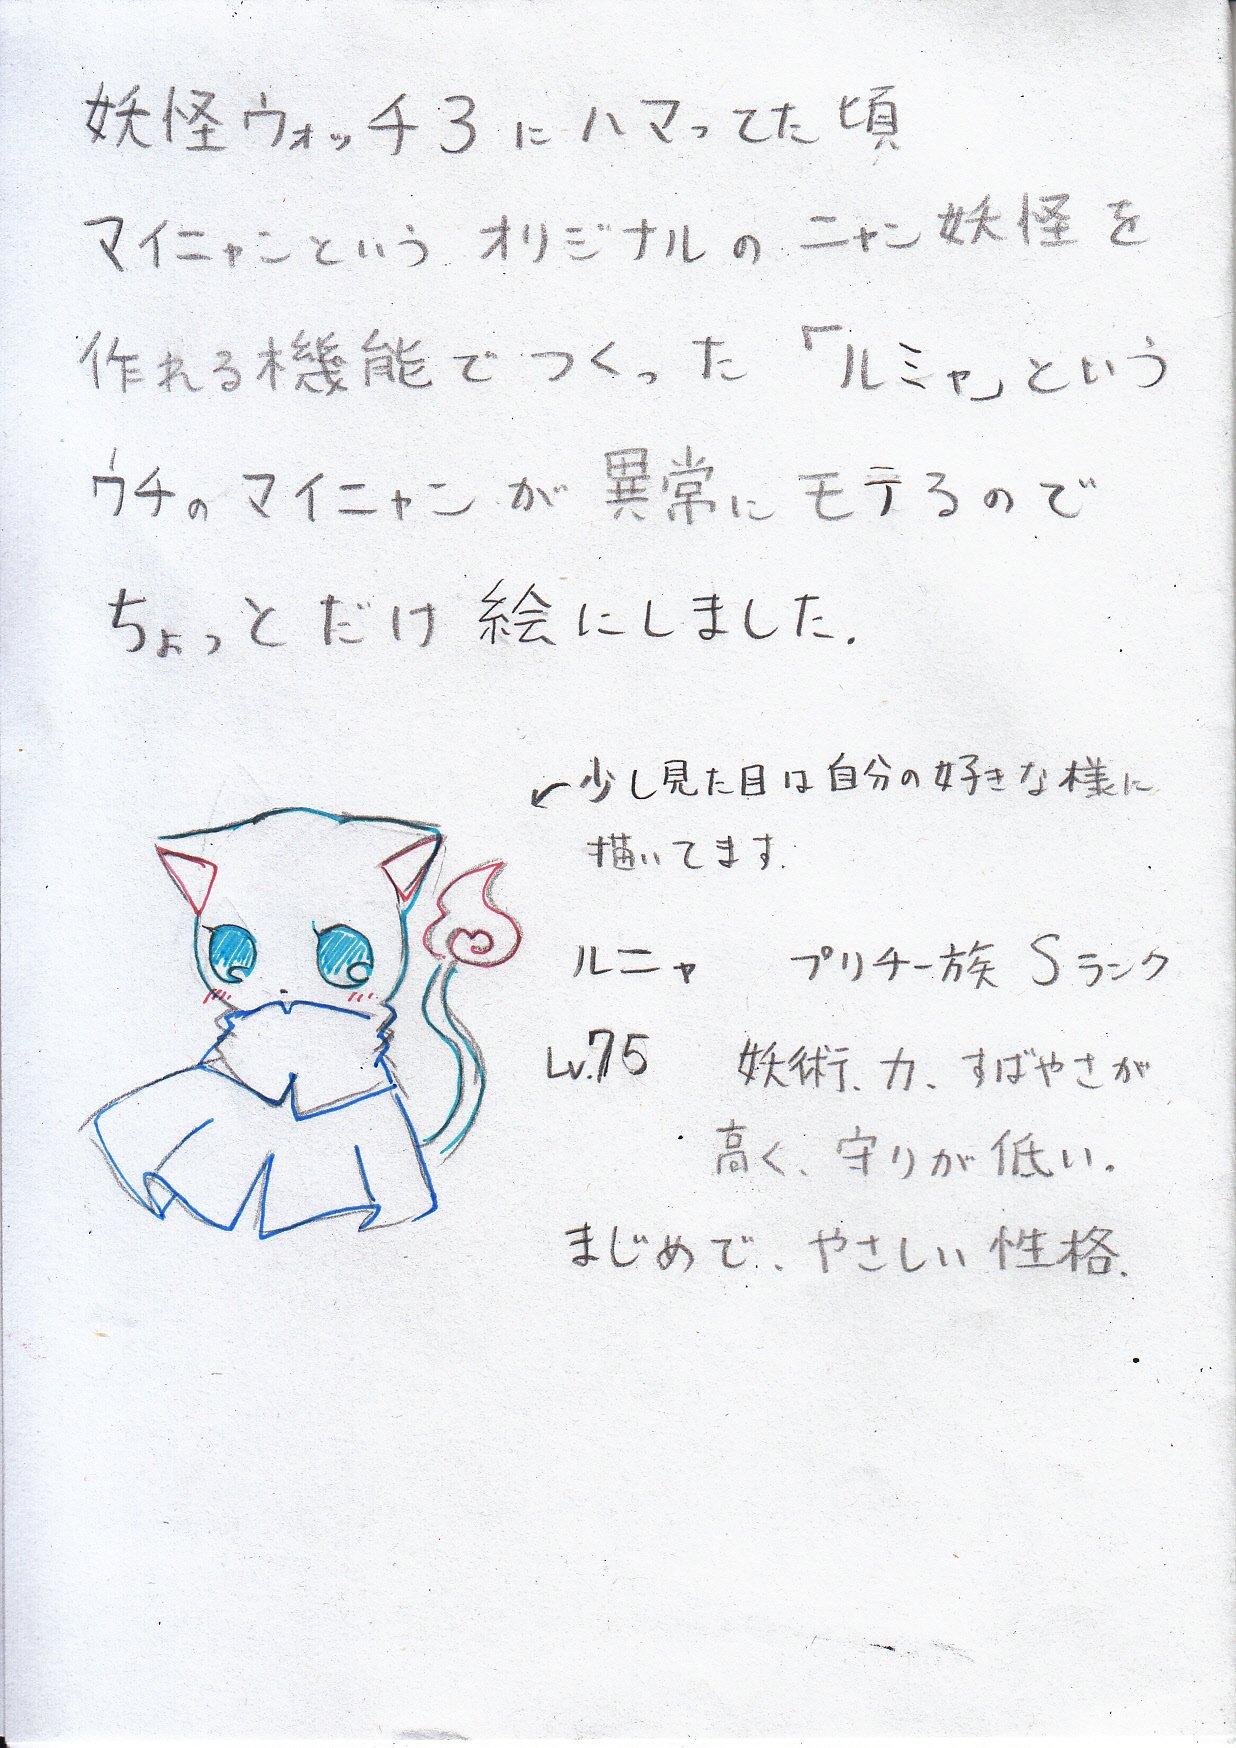 妖怪ウォッチ3にハマってた頃
マイニャンというオリジナルのニャン妖怪を
作れる機能でつくった「ルミャ」という
ウチのマイニャンが異常にモテるので
ちょっとだけ絵にしました.
←少し見た目は自分の好きな様に
描いてます.
ルニャ プリチー族 Sランク
Lv.75 妖術、力、すばやさが
高く、守りが低い。
まじめで、やさしい性格.